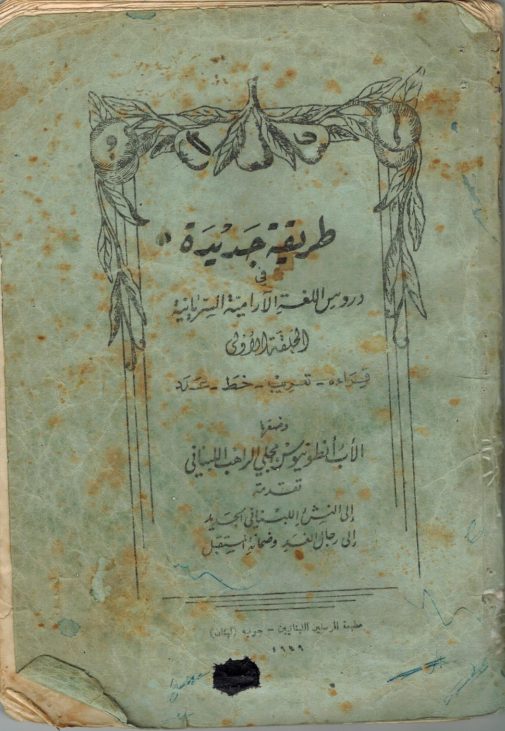 طريقة جديدة
في
دروس اللغة الآرامية السريانية
الحلقة الأولى
قراءة - تعريب - خط - عدد
وضعها
الأب أنطونيوس مجلي الراهب اللبناني
تقدمته
إلى النشء اللبناني الجديد
إلى رجال الغد وضمانة المستقبل
مطبعة المرسلين اللبنانيين - جونيه (لبنان)